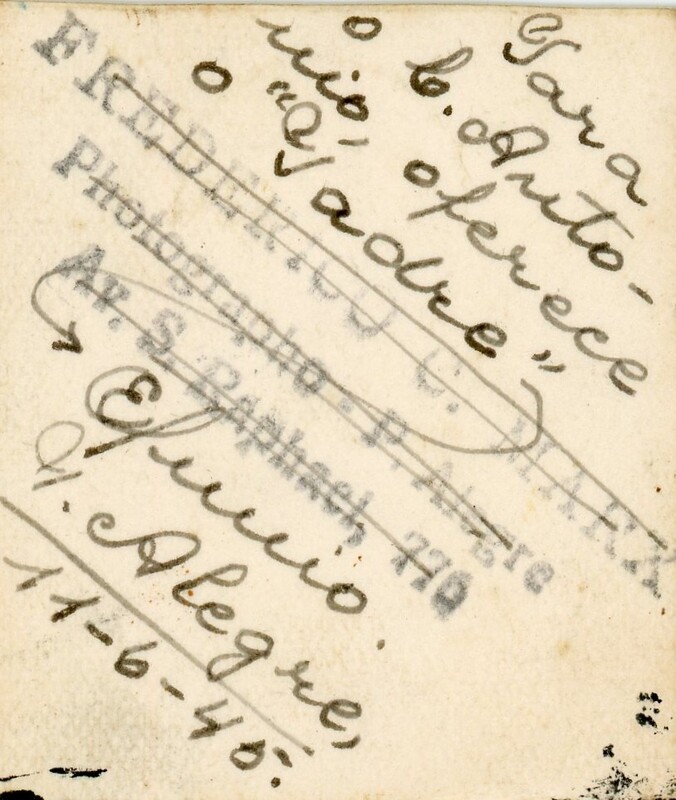 Para o
C. Anto-
nio, oferece
o "Padre"
Efunio.
P. Alegre,
11-6-45.
FREDERICO C. MARX
Photographo - P. Alegre
Av. S. Raphael, 770